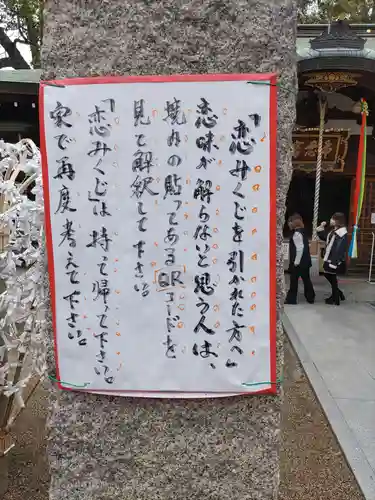 「恋みくじを引かれた方へ」
意味が解らないと思う人は、
の貼ってあるQRコードを
見て解釈して下さい。
「恋みくじ」は持って帰って下さい。
家で再度考えて下さい。